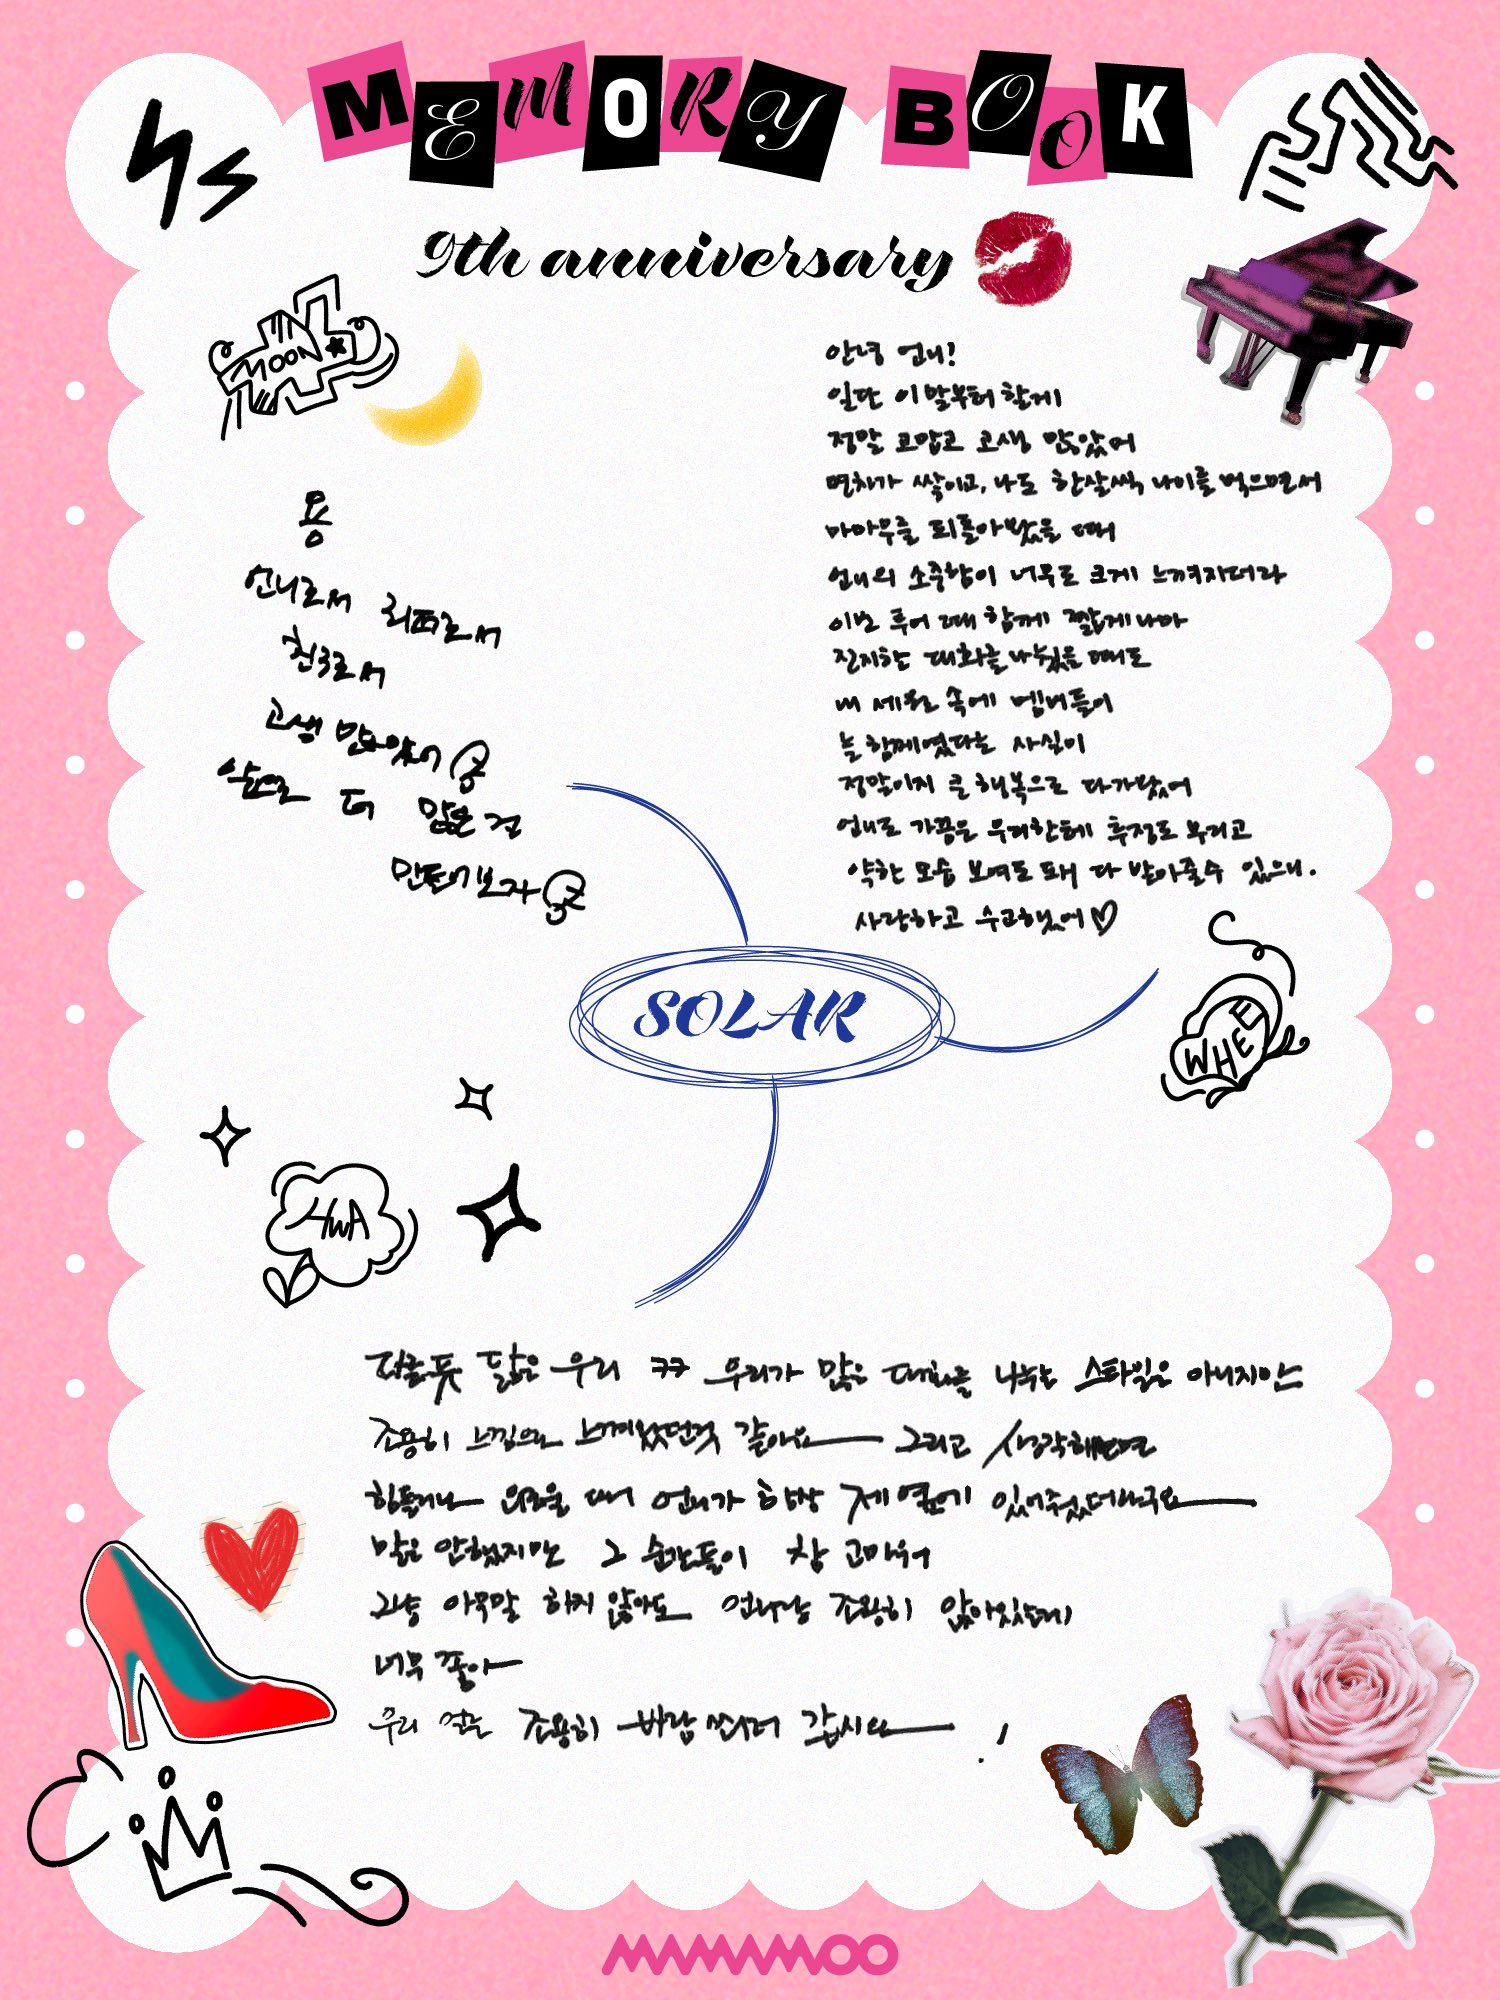 MEMORY BOOK
9th anniversary
MOON
용
언니로서 리더로서
친구로서
고생 많았어
앞으로 더 많은 걸
만들어보자
안녕 언니!
일단 이 말부터 할게
정말 고맙고 고생 많았어
연차가 쌓이고, 나도 한살씩 나이를 먹으면서
마마무를 되돌아봤을 때
언니의 소중함이 너무도 크게 느껴지더라
이번 투어 때 함께 짧게나마
진지한 대화를 나눴을 때도
내 세월 속에 멤버들이
늘 함께였다는 사실이
정말이지 큰 행복으로 다가왔어
언니도 가끔은 우리한테 투정도 부리고
약한 모습 보여도 돼 다 받아줄수 있으니.
사랑하고 수고했어♡
WHEE
SOLAR
HWA
닮은 우리 ㅋㅋ 우리가 많은 대화를 나누는 스타일은 아니지만
조용히 느낌으로 느껴왔던것 같아요 그리고 생각해보면
힘들거나 외로울 때 언니가 항상 제 옆에 있어줬더라구요
말은 안했지만 그 순간들이 참 고마워
그냥 아무말 하지 않아도 언니랑 조용히 앉아있는게
너무 좋아
우리 조용히 바람 쐬러 갑시다 !
MAMAMOO